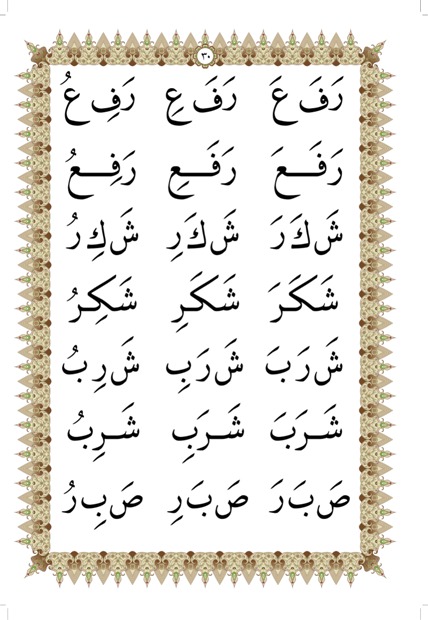 ٣٠
رَ فَ عَ رَ فَ عِ رَ فِ عُ
رَفَـــعَ رَفَـــعِ رَفِـــعُ
شَ كَ رَ شَ كَ رِ شَ كِ رُ
شَكَرَ شَكَرِ شَكِرُ
شَ رَ بَ شَ رَ بِ شَ رِ بُ
شَـرَبَ شَـرَبِ شَـرِبُ
صَ بَ رَ صَ بَ رِ صَ بِ رُ